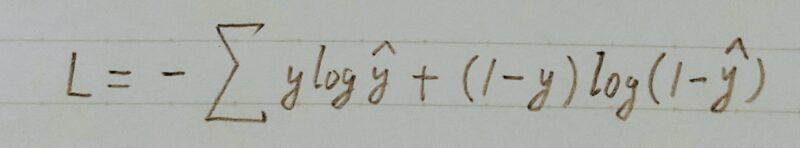 L = - ∑ y log ŷ + (1-y) log(1-ŷ)